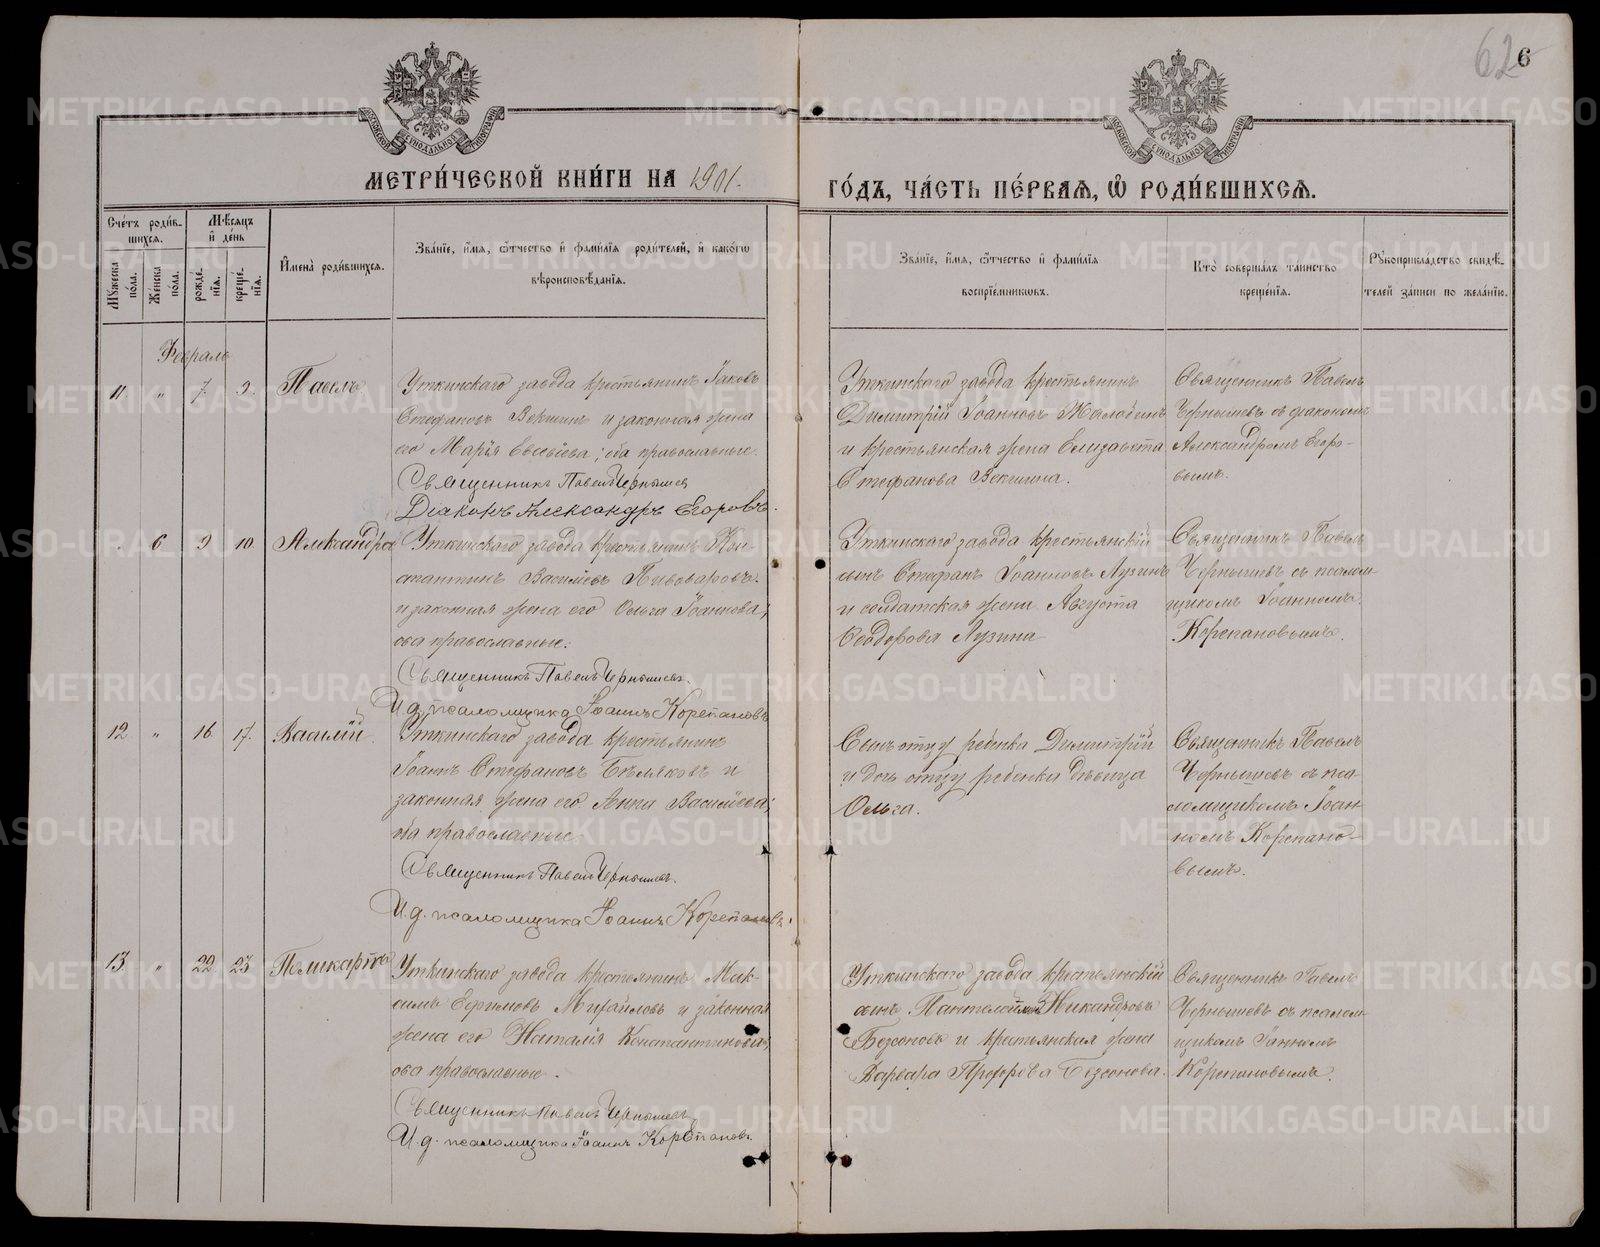 62 6
МЕТРИ́ЧЕСКОЙ КНИ́ГИ НА 1901.
ГО́ДЪ, ЧА́СТЬ ПЕ́РВАѦ, Ѽ РОДИ́ВШИХСѦ.
МОСКОВСКОЙ СѴНОДАЛЬНОЙ ТИПОГРАФІИ
МОСКОВСКОЙ СѴНОДАЛЬНОЙ ТИПОГРАФІИ
Сче́тъ роди́в-
шихся.
Мѣсяцъ
и день
Мужеска по́ла.
Же́нска по́ла.
рожде́нїя.
креще́нїя.
Имена̀ роди́вшихся.
Зва́нїе, и́мя, ѻ҆́тчество и фами́лїя роди́телей, и како́гѡ
вѣроисповѣ́данїя.
Зва́нїе, и́мя, ѻ҆́тчество и фами́лїя
воспрїе́мникѡвъ.
Кто̀ соверша́лъ та́инство
креще́нїя.
Рꙋкоприкла́дство свидѣ́-
телей за́писи по жела́нїю.
Февраль
11. " 7. 9. Павелъ.
Уткинскаго завода крестьянинъ Іаковъ
Стефановъ Векшинъ и законная жена
его Марія Евсевіева; оба православные.
Священникъ Павелъ Чернышевъ
Діаконъ Александръ Егоровъ.
Уткинскаго завода крестьянинъ
Димитрій Іоанновъ
и крестьянская жена Елизавета
Стефанова Векшина.
Священникъ Павелъ
Чернышевъ съ діакономъ
Александромъ Егоро-
вымъ.
6 9 10. Александра
Уткинскаго завода крестьянинъ Кон-
стантинъ Васильевъ Пивоваровъ
и законная жена его Ольга Іоаннова;
оба православные.
Священникъ Павелъ Чернышевъ.
И. д. псаломщика Іоаннъ Корепановъ
Уткинскаго завода крестьянскій
сынъ Стефанъ Іоанновъ Лузинъ
и солдатская жена Августа
Ѳеодорова Лузина
Священникъ Павелъ
Чернышевъ съ псалом-
щикомъ Іоанномъ
Корепановымъ.
12 " 16 17. Василій.
Уткинскаго завода крестьянинъ
Іоаннъ Стефановъ Бѣляковъ и
законная жена его Анна Васильева;
оба православные.
Священникъ Павелъ Чернышевъ.
И. д. псаломщика Іоаннъ Корепановъ.
Сынъ отцу ребенка Димитрій
и дочь отцу ребенка дѣвица
Ольга.
Священникъ Павелъ
Чернышевъ съ пса-
ломщикомъ Іоан-
номъ Корепано-
вымъ.
13. " 22 23 Поликарпъ
Уткинскаго завода крестьянинъ Мак-
симъ Ефимовъ Михайловъ и законная
жена его Наталія Константинова;
оба православные.
Священникъ Павелъ Чернышевъ
И. д. псаломщика Іоаннъ Корепановъ.
Уткинскаго завода крестьянскій
сынъ Пантелеймонъ Никандровъ
Безсоновъ и крестьянская жена
Варвара Безсонова.
Священникъ Павелъ
Чернышевъ съ псалом-
щикомъ Іоанномъ
Корепановымъ.
METRIKI.GASO-URAL.RU